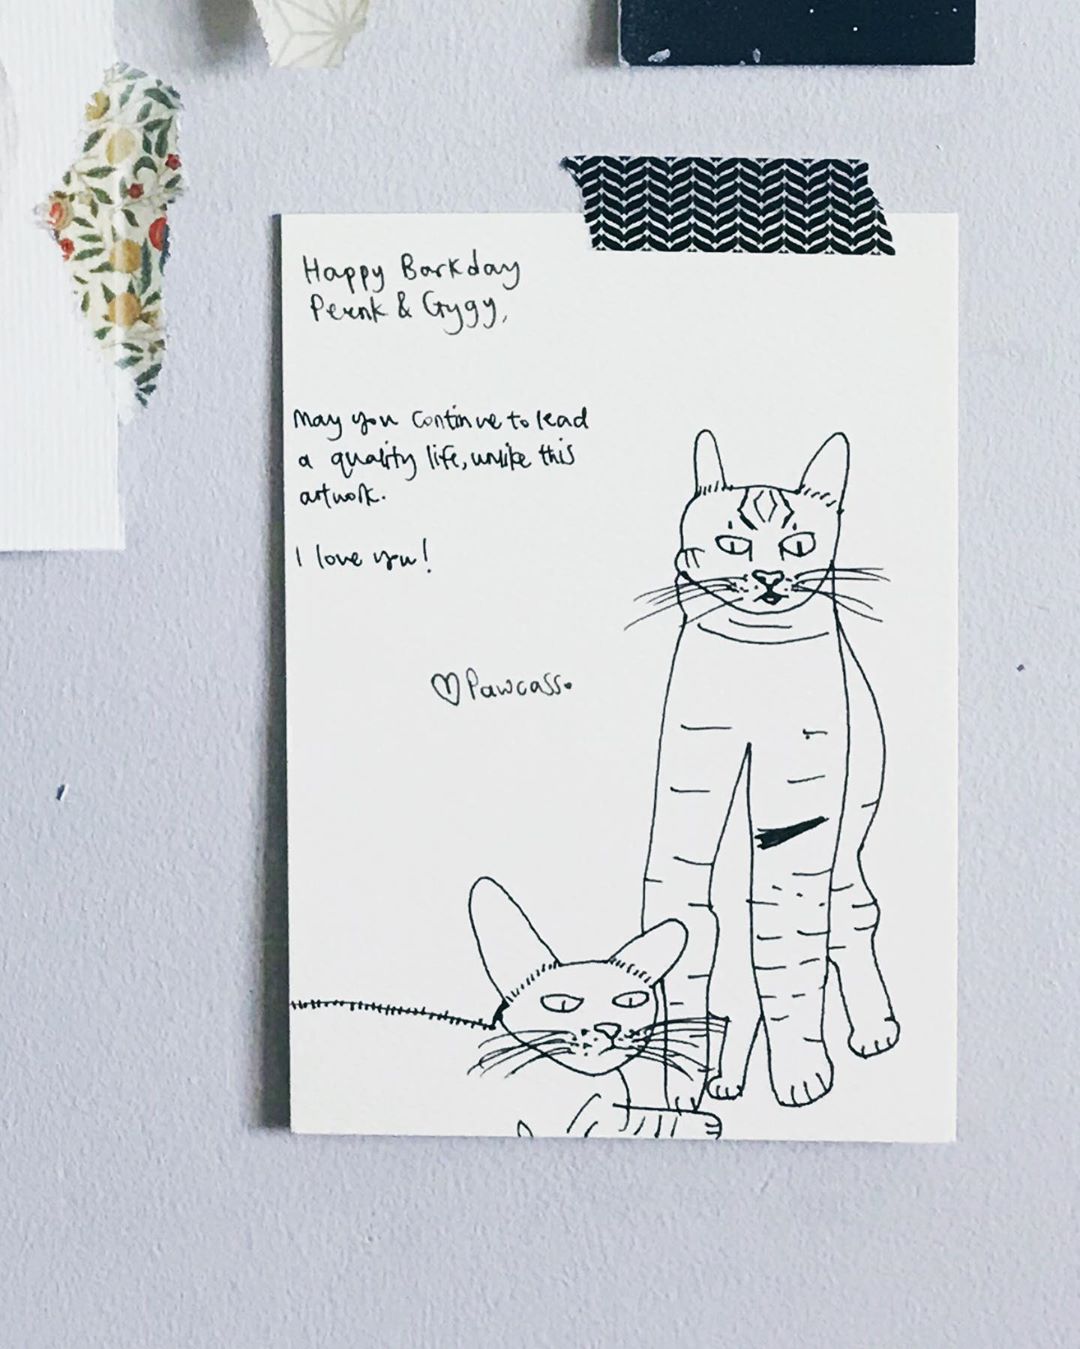 Happy Barkday
Pernk & Gygy,
May you continue to lead
a quality life, unlike this
artwork.
I love you!
♡Pawcass.